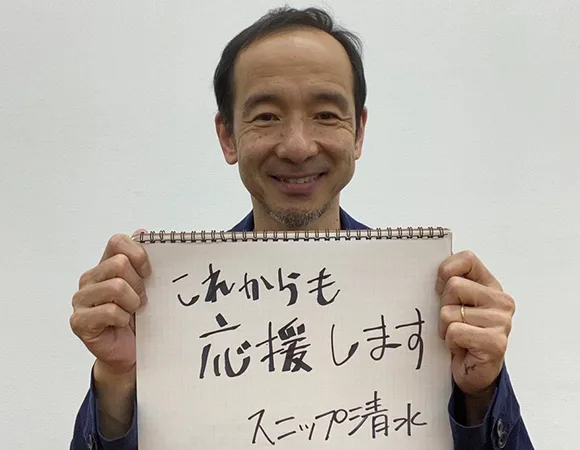 これからも
応援します
スニップ清水